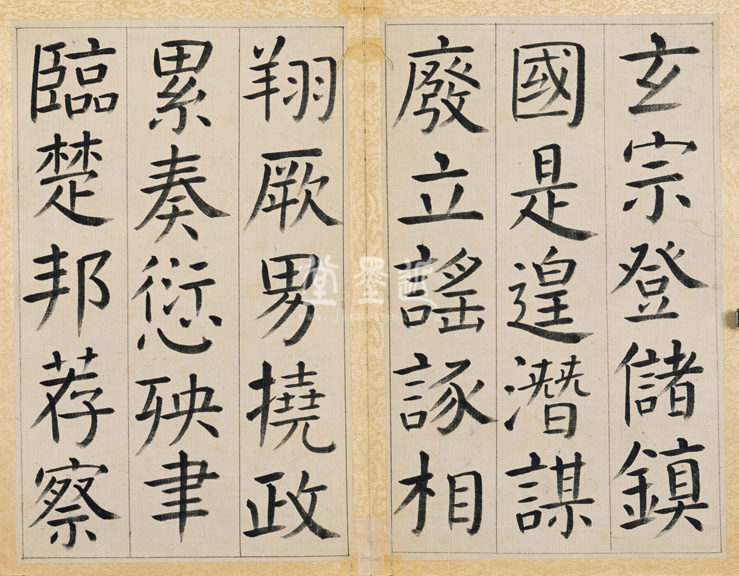 玄宗登儲鎮
國是遑潛謀
廢立謠諑相
翔厥男撓政
累奏愆殃聿
臨楚邦荐察